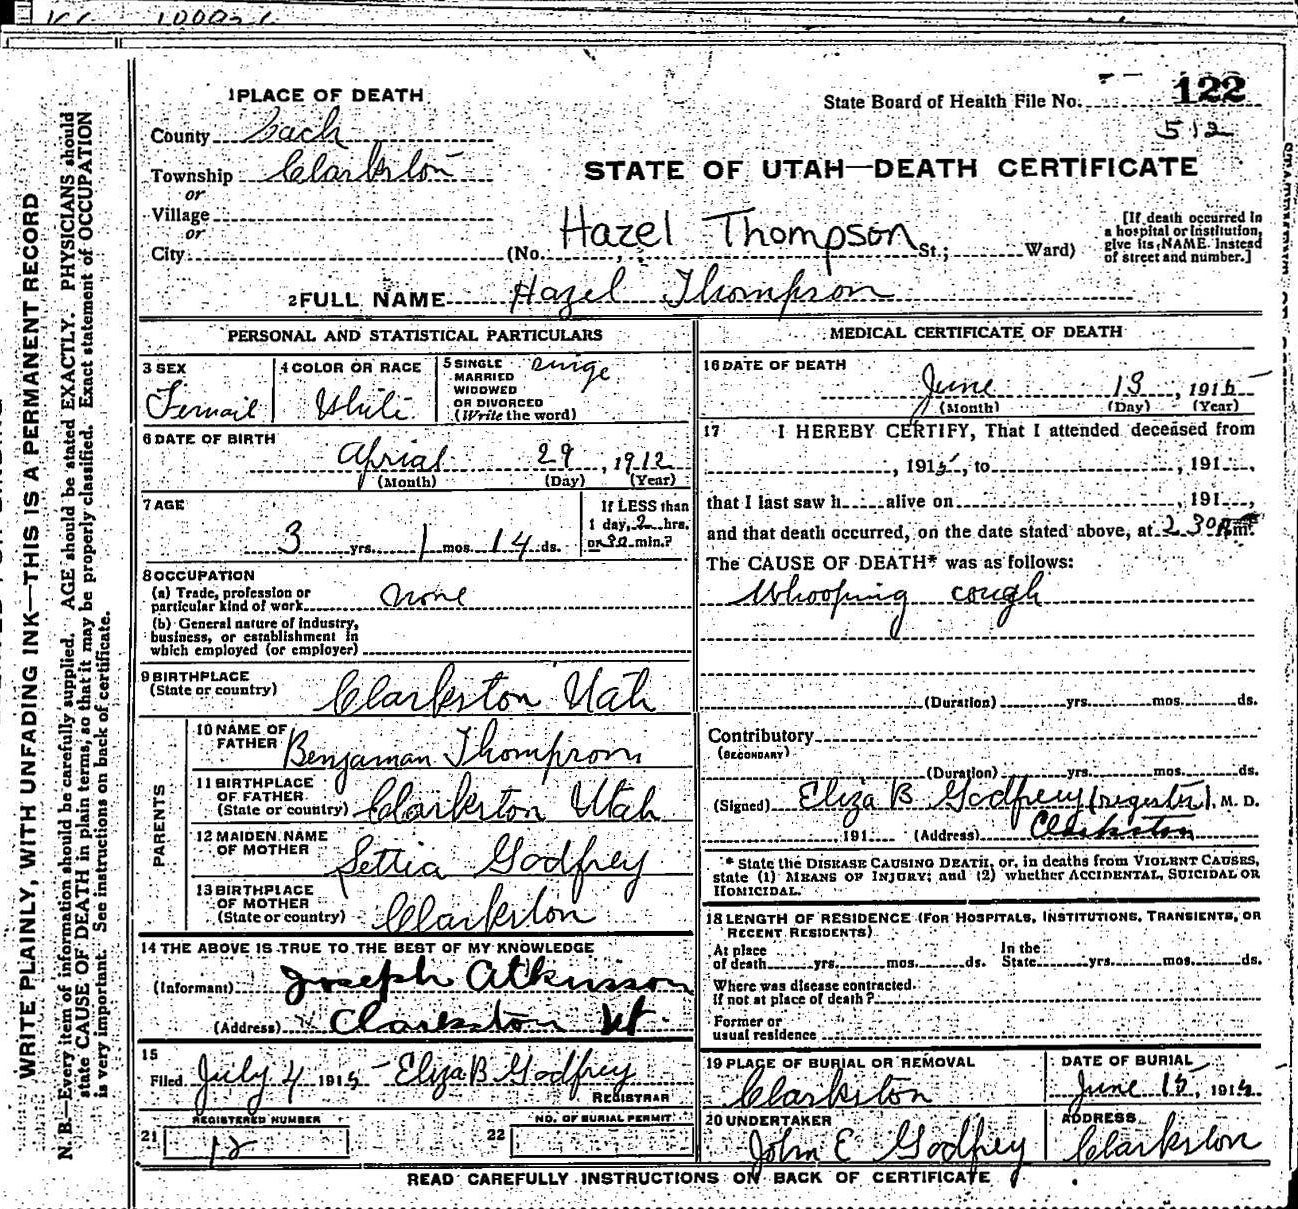 1 PLACE OF DEATH
County Cach
Township Clarkston
or
Village
or
City
State Board of Health File No. 122
512
STATE OF UTAH—DEATH CERTIFICATE
(No. Hazel Thompson St.; Ward)
[If death occurred in
a hospital or institution,
give its NAME instead
of street and number.]
2 FULL NAME Hazel Thompson
PERSONAL AND STATISTICAL PARTICULARS
3 SEX
Femail
4 COLOR OR RACE
White
5 SINGLE
MARRIED
WIDOWED
OR DIVORCED
(Write the word)
singe
6 DATE OF BIRTH
Aprial 29, 1912
(Month) (Day) (Year)
7 AGE
3 yrs. 1 mos. 14 ds.
If LESS than
1 day, 2 hrs.
or 30 min.?
8 OCCUPATION
(a) Trade, profession or
particular kind of work none
(b) General nature of industry,
business, or establishment in
which employed (or employer)
9 BIRTHPLACE
(State or country) Clarkston Utah
PARENTS
10 NAME OF
FATHER Benjaman Thompson
11 BIRTHPLACE
OF FATHER
(State or country) Clarkston Utah
12 MAIDEN NAME
OF MOTHER Settia Godfrey
13 BIRTHPLACE
OF MOTHER
(State or country) Clarkston
14 THE ABOVE IS TRUE TO THE BEST OF MY KNOWLEDGE
(Informant) Joseph Atkinson
(Address) Clarkston Ut.
15
Filed July 4 1915 Eliza B Godfrey
REGISTRAR
REGISTERED NUMBER
21 12
NO. OF BURIAL PERMIT
22
MEDICAL CERTIFICATE OF DEATH
16 DATE OF DEATH
June 13, 1915
(Month) (Day) (Year)
17 I HEREBY CERTIFY, That I attended deceased from
, 1915, to , 191 ,
that I last saw h alive on , 191 ,
and that death occurred, on the date stated above, at 2 30 m.
The CAUSE OF DEATH* was as follows:
Whooping cough
(Duration) yrs. mos. ds.
Contributory
(SECONDARY)
(Duration) yrs. mos. ds.
(Signed) Eliza B Godfrey (register), M. D.
, 191 (Address) Clarkston
* State the DISEASE CAUSING DEATH, or, in deaths from VIOLENT CAUSES,
state (1) MEANS OF INJURY; and (2) whether ACCIDENTAL, SUICIDAL OR
HOMICIDAL.
18 LENGTH OF RESIDENCE (FOR HOSPITALS, INSTITUTIONS, TRANSIENTS, OR
RECENT RESIDENTS)
At place
of death yrs. mos. ds.
In the
State yrs. mos. ds.
Where was disease contracted.
If not at place of death?
Former or
usual residence
19 PLACE OF BURIAL OR REMOVAL
Clarkston
DATE OF BURIAL
June 15, 1915
20 UNDERTAKER
John E Godfrey
ADDRESS
Clarkston
READ CAREFULLY INSTRUCTIONS ON BACK OF CERTIFICATE
WRITE PLAINLY, WITH UNFADING INK—THIS IS A PERMANENT RECORD
N. B.—Every item of information should be carefully supplied. AGE should be stated EXACTLY. PHYSICIANS should
state CAUSE OF DEATH in plain terms, so that it may be properly classified. Exact statement of OCCUPATION
is very important. See instructions on back of certificate.